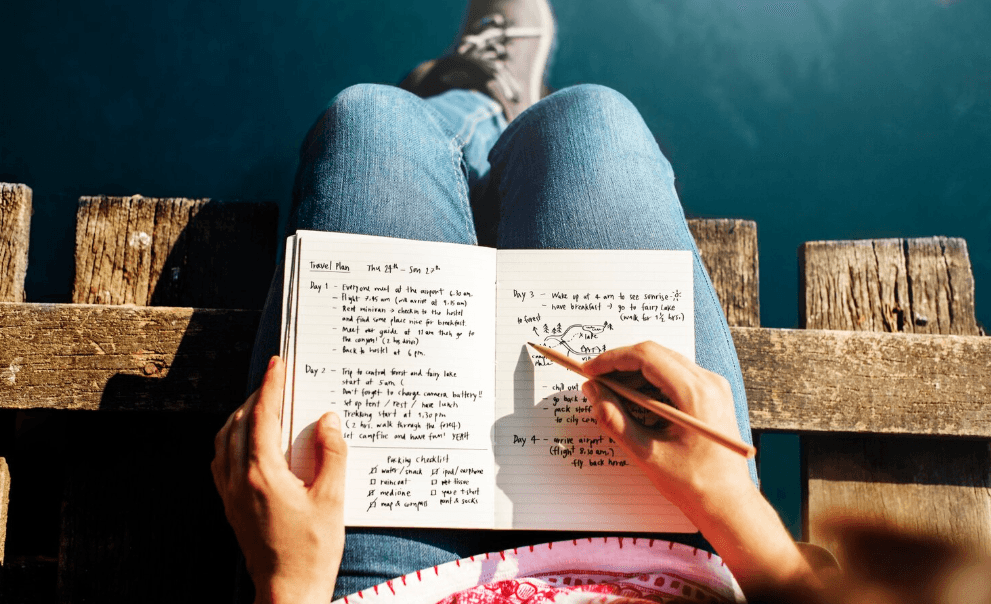 Travel Plan Thu 24th - Sun 27th
Day 1 - Everyone must at the airport 6.30 am.
- Flight 7.45 am (will arrive at 9.15 am)
- Rent minivan → checkin to the hostel
and find some place nice for breakfast.
- Meet our guide at 11 am then go to
the canyon! (2 hrs drive)
- Back to hostel at 6 pm.
Day 2 - Trip to central forest and fairy lake
start at 5 am (
- Don't forget to charge camera battery!!
- Set up tent / rest / have lunch
- Trekking start at 3.30 pm
(2 hrs. walk through the forest)
- Set campfire and have fun! YEAH
Packing Checklist
water / snack
raincoat
medicine
map &
ipod / earphone
wet tissue
spare t-shirt
pant & socks
Day 3 - Wake up at 4 am to see sunrise
- have breakfast → go to fairy lake
(walk for 1 ½ hrs.)
to forest
lake
- chill out
- go back to
- pack stuff
to city
Day 4 - arrive airport
(flight 8.30 am)
fly back home